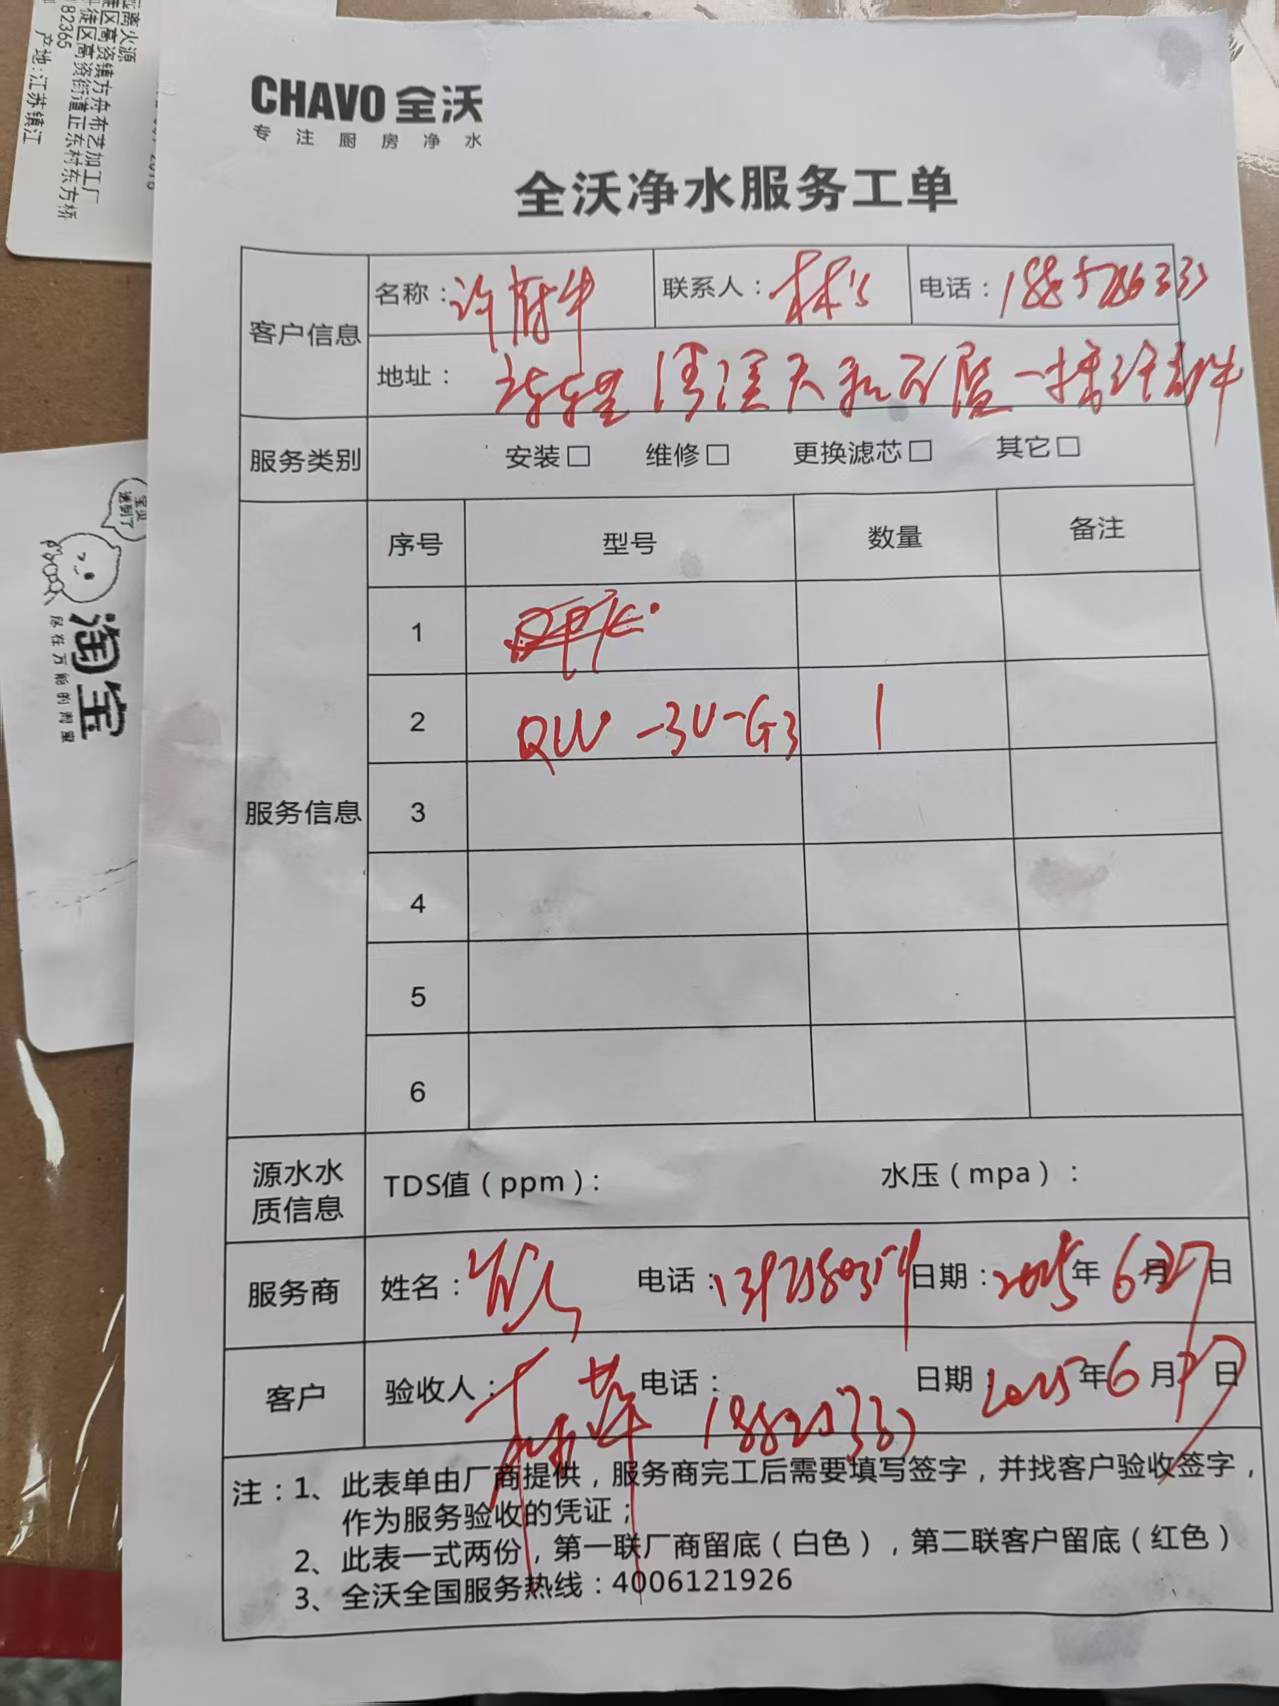 离火源
徒区高资镇方舟布艺加工厂
徒区高资街道正东村东方桥
82365
产地:江苏镇江
宝贝
淘到了
淘宝
尽在万能的淘宝
CHAVO 全沃
专注厨房净水
全沃净水服务工单
客户信息
名称：许府牛
联系人：林's
电话：
地址：
服务类别
安装□ 维修□ 更换滤芯□ 其它□
服务信息
序号 型号 数量 备注
1
2 QW-3U-G3 1
3
4
5
6
源水水质信息
TDS值（ppm）： 水压（mpa）：
服务商
姓名： 电话： 日期：2025年6月27日
客户
验收人： 电话： 日期：2025年6月27日
注：1、此表单由厂商提供，服务商完工后需要填写签字，并找客户验收签字，
作为服务验收的凭证；
2、此表一式两份，第一联厂商留底（白色），第二联客户留底（红色）
3、全沃全国服务热线：4006121926